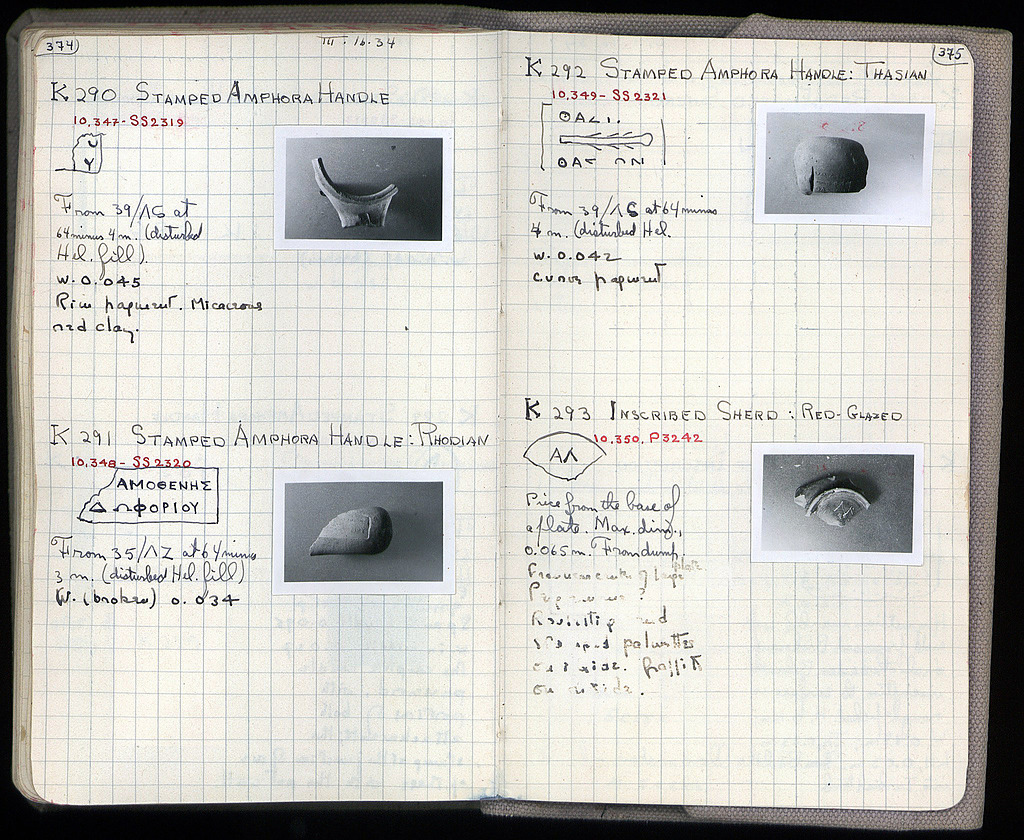 374
III. 16. 34
K 290 STAMPED AMPHORA HANDLE
10,347 - SS 2319
U
Y
From 39/ΛΣ at
64 minus 4 m. (disturbed
Hel. fill).
W. 0.045
Micaceous
red clay.
K 291 STAMPED AMPHORA HANDLE: RHODIAN
10,348 - SS 2320
ΑΜΟΘΕΝΗΣ
Δ ΩΦΟΡΙΟΥ
From 35/ΛΖ at 64 minus
3 m. (disturbed Hel. fill)
W. (broken) 0.034
375
K 292 STAMPED AMPHORA HANDLE: THASIAN
10,349 - SS 2321
ΘΑΣΙ.
ΘΑΣ ΩΝ
From 39/ΛΣ at 64 minus
4 m. (disturbed Hel.
W. 0.042
K 293 INSCRIBED SHERD: RED-GLAZED
10,350, P 3242
ΑΛ
Piece from the base of
a plate. Max. dim.,
0.065 m. From dump.
of large plate.
palmettes